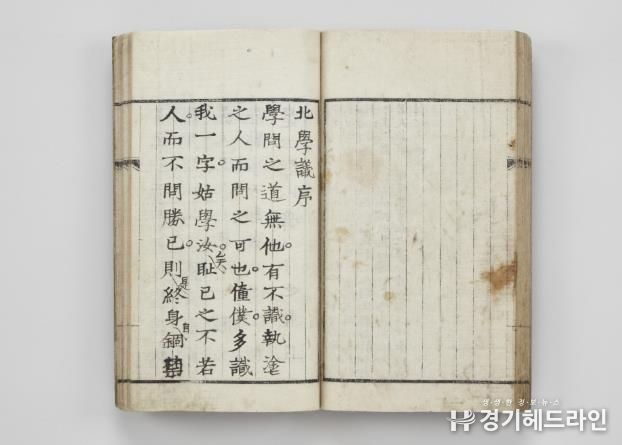 北學議序
學問之道無他。有不識。執塗
之人而問之可也。僮僕。多識
我一字。姑學汝矣。恥己之不若
人。而不問勝已。則是終身自錮
생·생·한·정·보·뉴·스
경기헤드라인